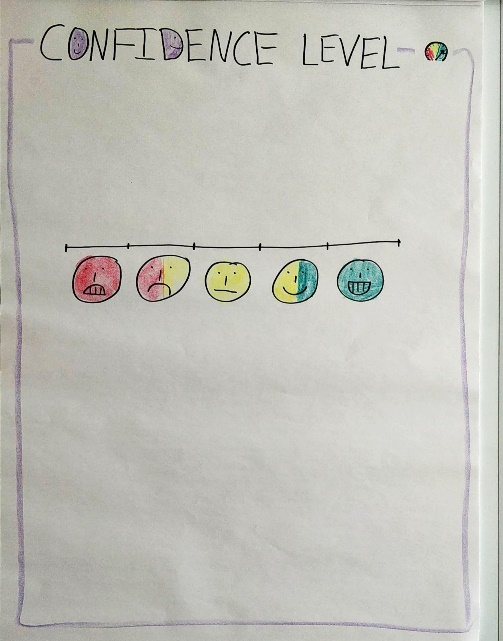 CONFIDENCE LEVEL